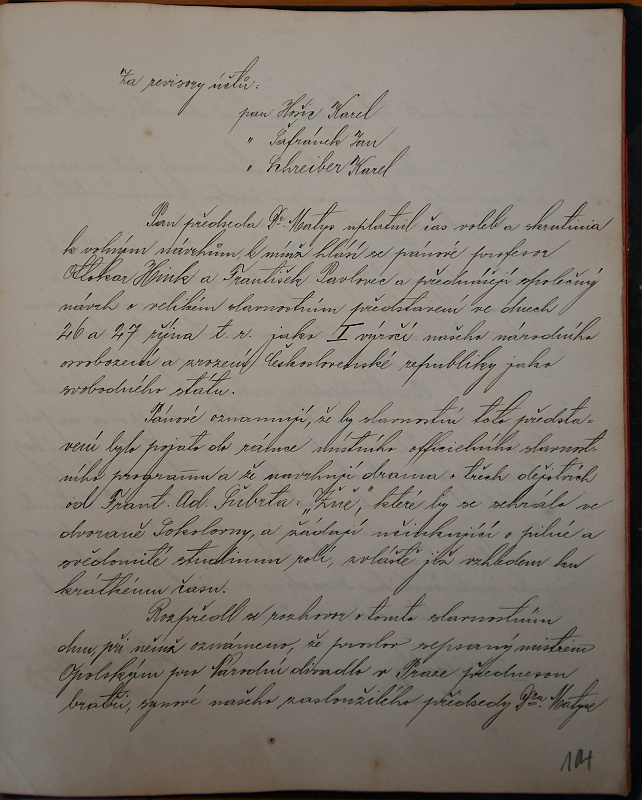 Za revisory účtů:
pan Hořic Karel
" Šafránek Jan
" Schreiber Karel
Pan předseda Dr. Matys uplatnil čas voleb a skrutinia
k volným návrhům, k nimž hlásí se pánové profesor
Ottokar Hink a František Pavlovec a přednášejí společný
návrh o velikém slavnostním představení ve dnech
26 a 27 října t. r. jako I výročí našeho národního
osvobození a zrození Československé republiky jako
svobodného státu.
Pánové oznamují, že by slavnostní toto předsta-
vení bylo pojato do rámce místního officielního slavnost-
ního programu a že navrhují drama o třech dějstvích
od Frant. Ad. Šuberta: „Žně", které by se sehrálo ve
dvoraně Sokolovny, a žádají účinkující o pilné a
svědomité studium rolí, zvláště již vzhledem ku
krátkému času.
Rozpředl se rozhovor o tomto slavnostním
dnu, při němž oznámeno, že proslov sepsaný mistrem
Opolským pro Národní divadlo v Praze přednesou
bratři, synové našeho zasloužilého předsedy Dra. Matyse